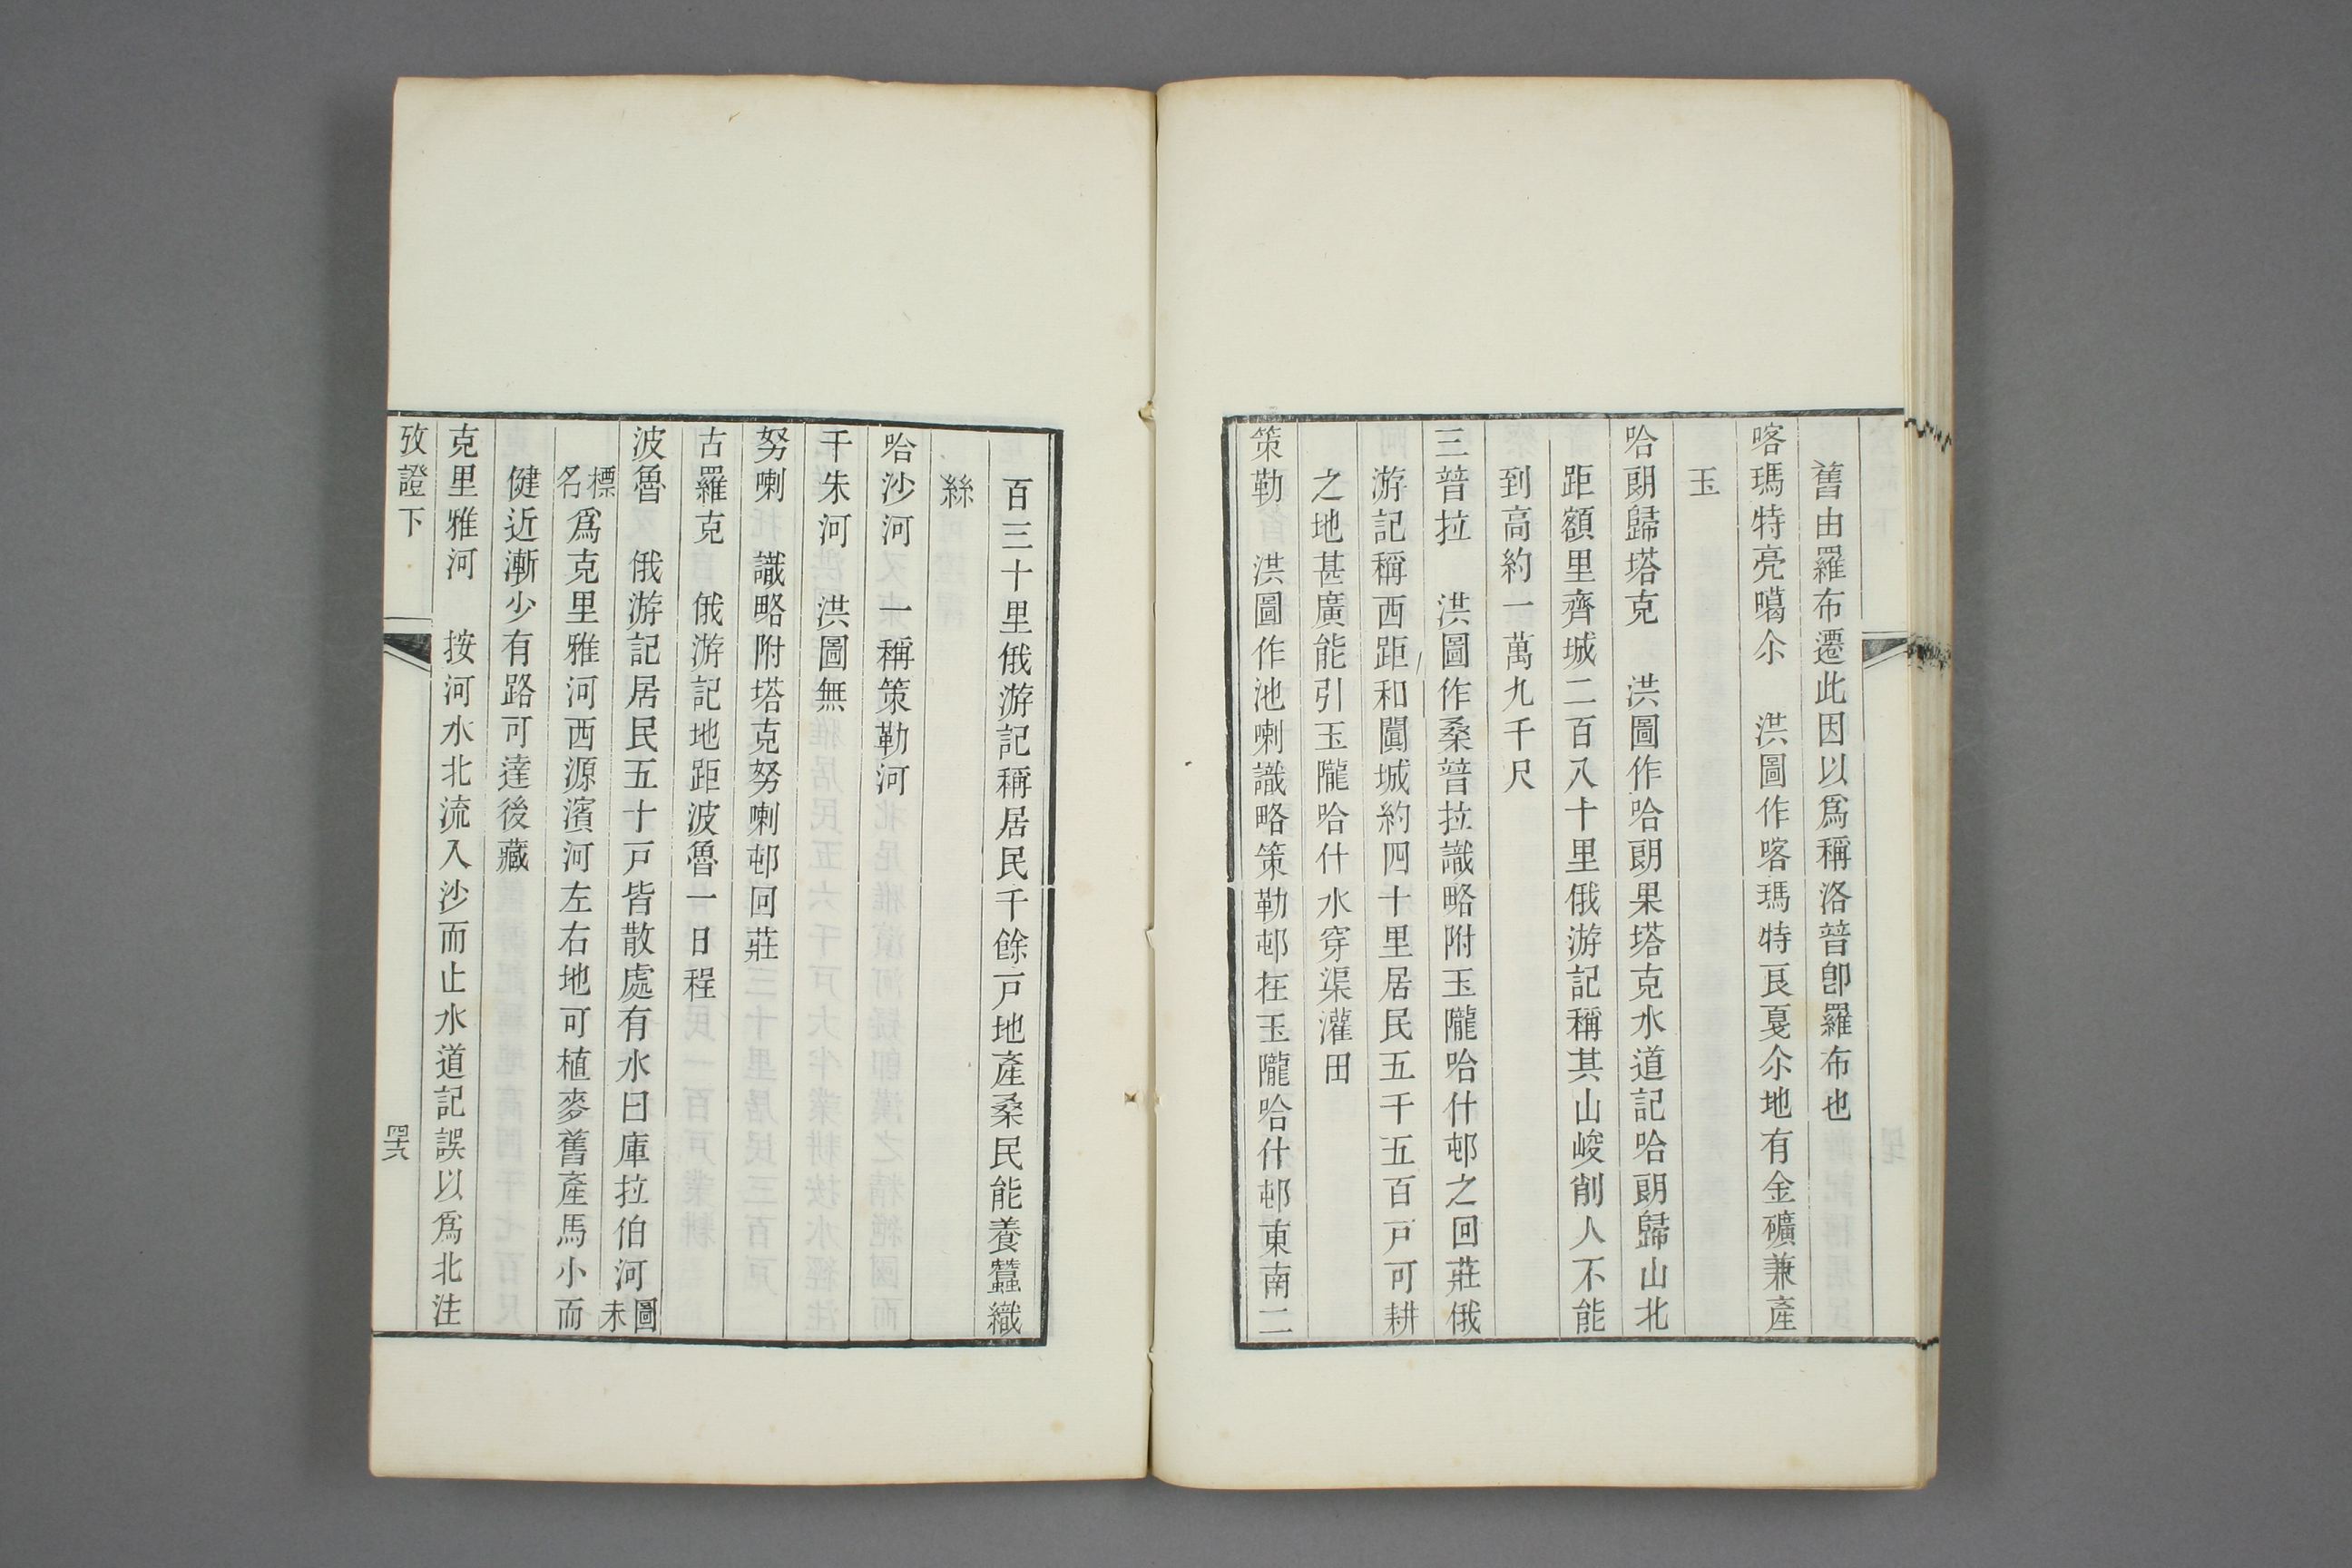 舊由羅布遷此因以爲稱洛普卽羅布也
喀瑪特亮噶尒　洪圖作喀瑪特艮戞尒地有金礦兼產
玉
哈朗歸塔克　洪圖作哈朗果塔克水道記哈朗歸山北
距額里齊城二百八十里俄游記稱其山峻削人不能
到高約一萬九千尺
三普拉　洪圖作桑普拉識略附玉隴哈什邨之回莊俄
游記稱西距和闐城約四十里居民五千五百戸可耕
之地甚廣能引玉隴哈什水穿渠灌田
策勒　洪圖作池喇識略策勒邨在玉隴哈什邨東南二
百三十里俄游記稱居民千餘戸地產桑民能養蠶織
絲
哈沙河　一稱策勒河
千朱河　洪圖無
努喇　識略附塔克努喇邨回莊
古羅克　俄游記地距波魯一日程
波魯　俄游記居民五十戸皆散處有水曰庫拉伯河圖未
標名爲克里雅河西源濱河左右地可植麥舊產馬小而
健近漸少有路可達後藏
克里雅河　按河水北流入沙而止水道記誤以爲北注
攷證下
四六